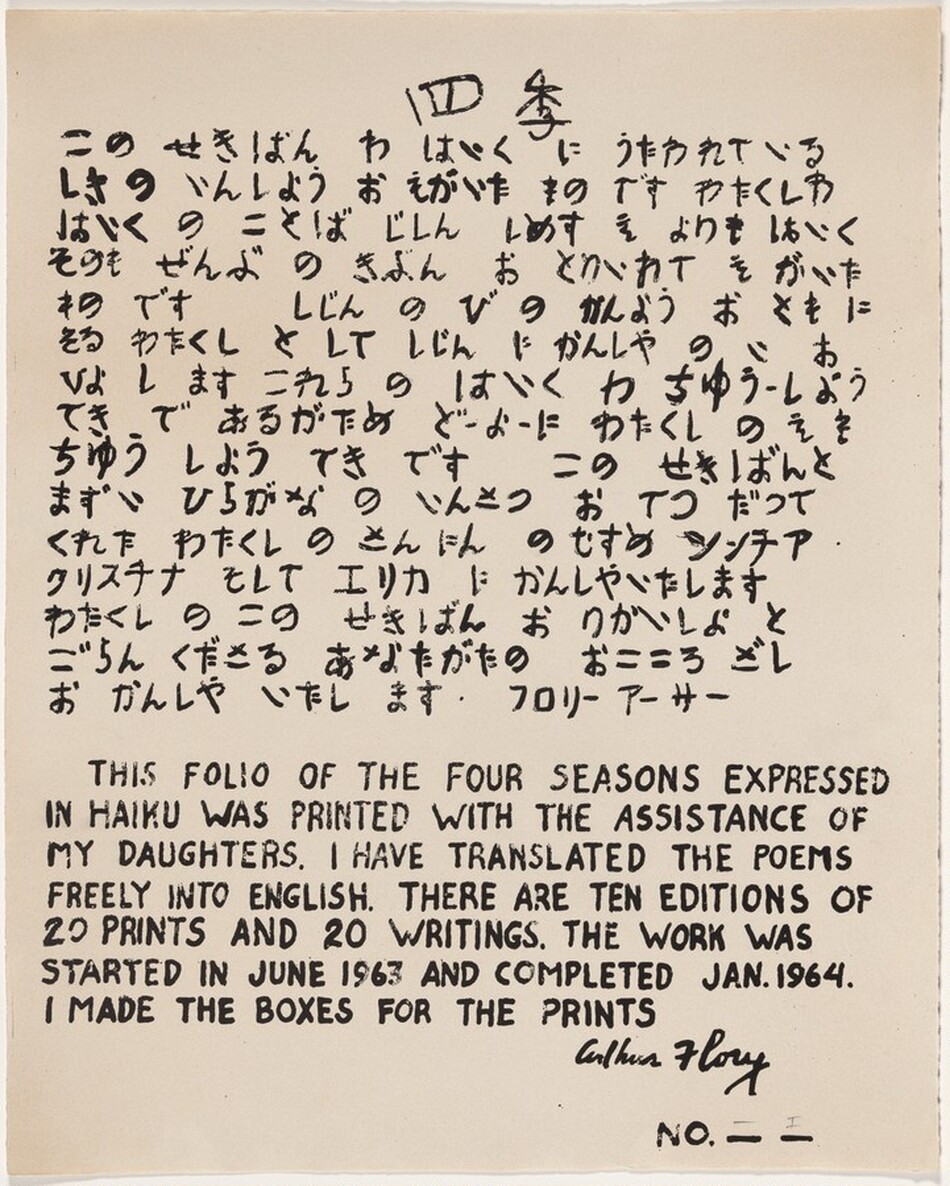 四季
この せきばん わ はいく に うたわれて いる
しきの いんしよう お えがいた もの です わたくしわ
はいく の ことば じしん しめす え よりも はいく
そのも ぜんぶ の きぶん お とりいれて え がいた
もの です しじん の び の かんよう お ともに
そる わたくし と して しじん に かんしや の い お
ひよ し ます これら の はいく わ ちゆう-しよう
てき で あるがため ど-よ-に わたくし の え そ
ちゆう しよう てき です この せきばんと
まずい ひらがな の いんさつ お てつ だって
くれた わたくし の さん にん の むすめ シンチア
クリスチナ そして エリカ に かんしやいたします
わたくし の この せきばん お りかいしよ と
ごらん くださる あなたがたの おこころ ざし
お かんしや いたし ます. フロリー アーサー
THIS FOLIO OF THE FOUR SEASONS EXPRESSED
IN HAIKU WAS PRINTED WITH THE ASSISTANCE OF
MY DAUGHTERS. I HAVE TRANSLATED THE POEMS
FREELY INTO ENGLISH. THERE ARE TEN EDITIONS OF
20 PRINTS AND 20 WRITINGS. THE WORK WAS
STARTED IN JUNE 1963 AND COMPLETED JAN. 1964.
I MADE THE BOXES FOR THE PRINTS
Arthur Flory
NO.